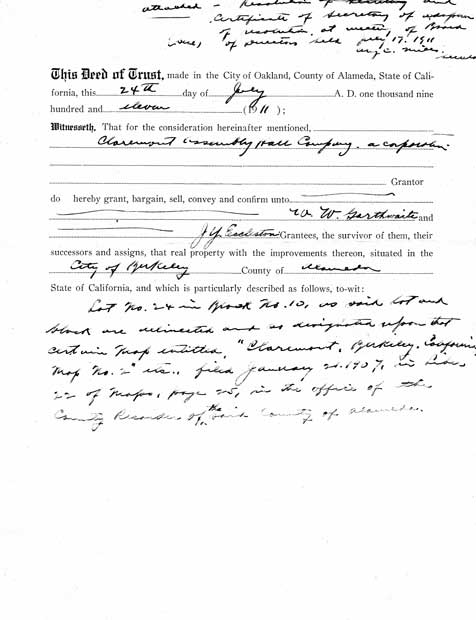 attached - Resolution of Secretary and
Certificate of Secretary of adoption
of resolution at meeting of Board
of Directors held July 17, 1911
This Deed of Trust, made in the City of Oakland, County of Alameda, State of Cali-
fornia, this 24th day of July A. D. one thousand nine
hundred and eleven (1911);
Witnesseth, That for the consideration hereinafter mentioned,
Claremont Assembly Hall Company, a corporation
Grantor
do hereby grant, bargain, sell, convey and confirm unto
W. W. Garthwaite and
J. Y. Eccleston Grantees, the survivor of them, their
successors and assigns, that real property with the improvements thereon, situated in the
City of Berkeley County of Alameda
State of California, and which is particularly described as follows, to-wit:
Lot No. 24 in Block No. 10, as said lot and
block are delineated and so designated upon that
certain Map entitled, "Claremont, Berkeley, California
Map No. 2" etc., filed January 21, 1907, in Liber
22 of Maps, page 25, in the office of the
County Recorder of the said County of Alameda.